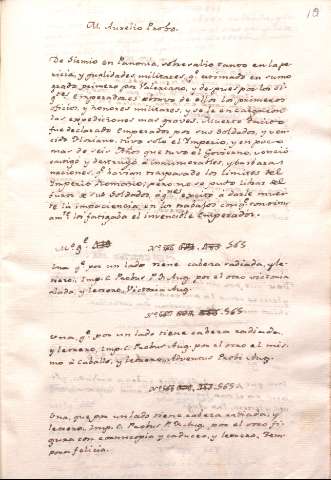 19
M. Aurelio Probo.
De Sirmio en Panonia, sobresalio tanto en la pe-
ricia, y qualidades militares, qe estimado en sumo
grado primero por Valeriano, y despues por los si-
gtes Emperadores obtuvo de ellos los primeros
oficios, y honores militares, y se le encargaron
las expediciones mas graves. Muerto Tacito
fue declarado Emperador por sus Soldados, y ven-
cido Floriano, tuvo solo el Imperio, y en poco
mas de seis Años que tuvo el Govierno, venció
castigó y destruyó a innumerables, y barbaras
naciones, qe havian traspasado los limites del
Imperio Romano; pero no se pudo librar del
furor de sus Soldados, a qnes excitó a darle muer-
te la impaciencia en los trabajos con qe continu-
amte los fatigaba el invencible Emperador.
565
Una qe por un lado tiene cabeza radiada, y le-
trero, Imp. C. Probus P. F. Aug. por el otro victoria
alada, y letrero, Victoria Aug.
565
Una, qe por un lado tiene cabeza radiada,
y letrero, Imp. C. Probus P. F. Aug. por el otro el mis-
mo à caballo, y letrero, Adventus Probi Aug.
565
Una, que por un lado tiene cabeza radiada, y
letrero, Imp. C. Probus P. F. Aug. por el otro fi-
gura con cornucopia y caduceo, y letrero, Tem-
porum felicia.